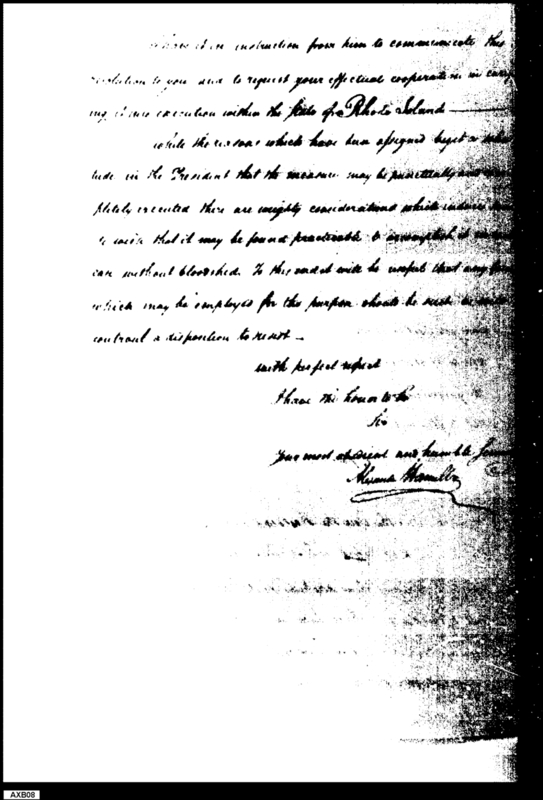 it an instruction from him to communicate this
to you and to request your effectual cooperation in carry
ing it into execution within the State of Rhode Island
While the reasons which have been assigned beget a
in the President that the measure may be punctually and
pletely executed there are weighty considerations which induce
wish that it may be found practicable to accomplish it in
case without bloodshed. To this end it will be useful that any
which may be employed for the purpose should be such as
controul a disposition to resist
with perfect respect
I have the honor to be
Sir
Your most obedient and humble
Hamilton
AXB08